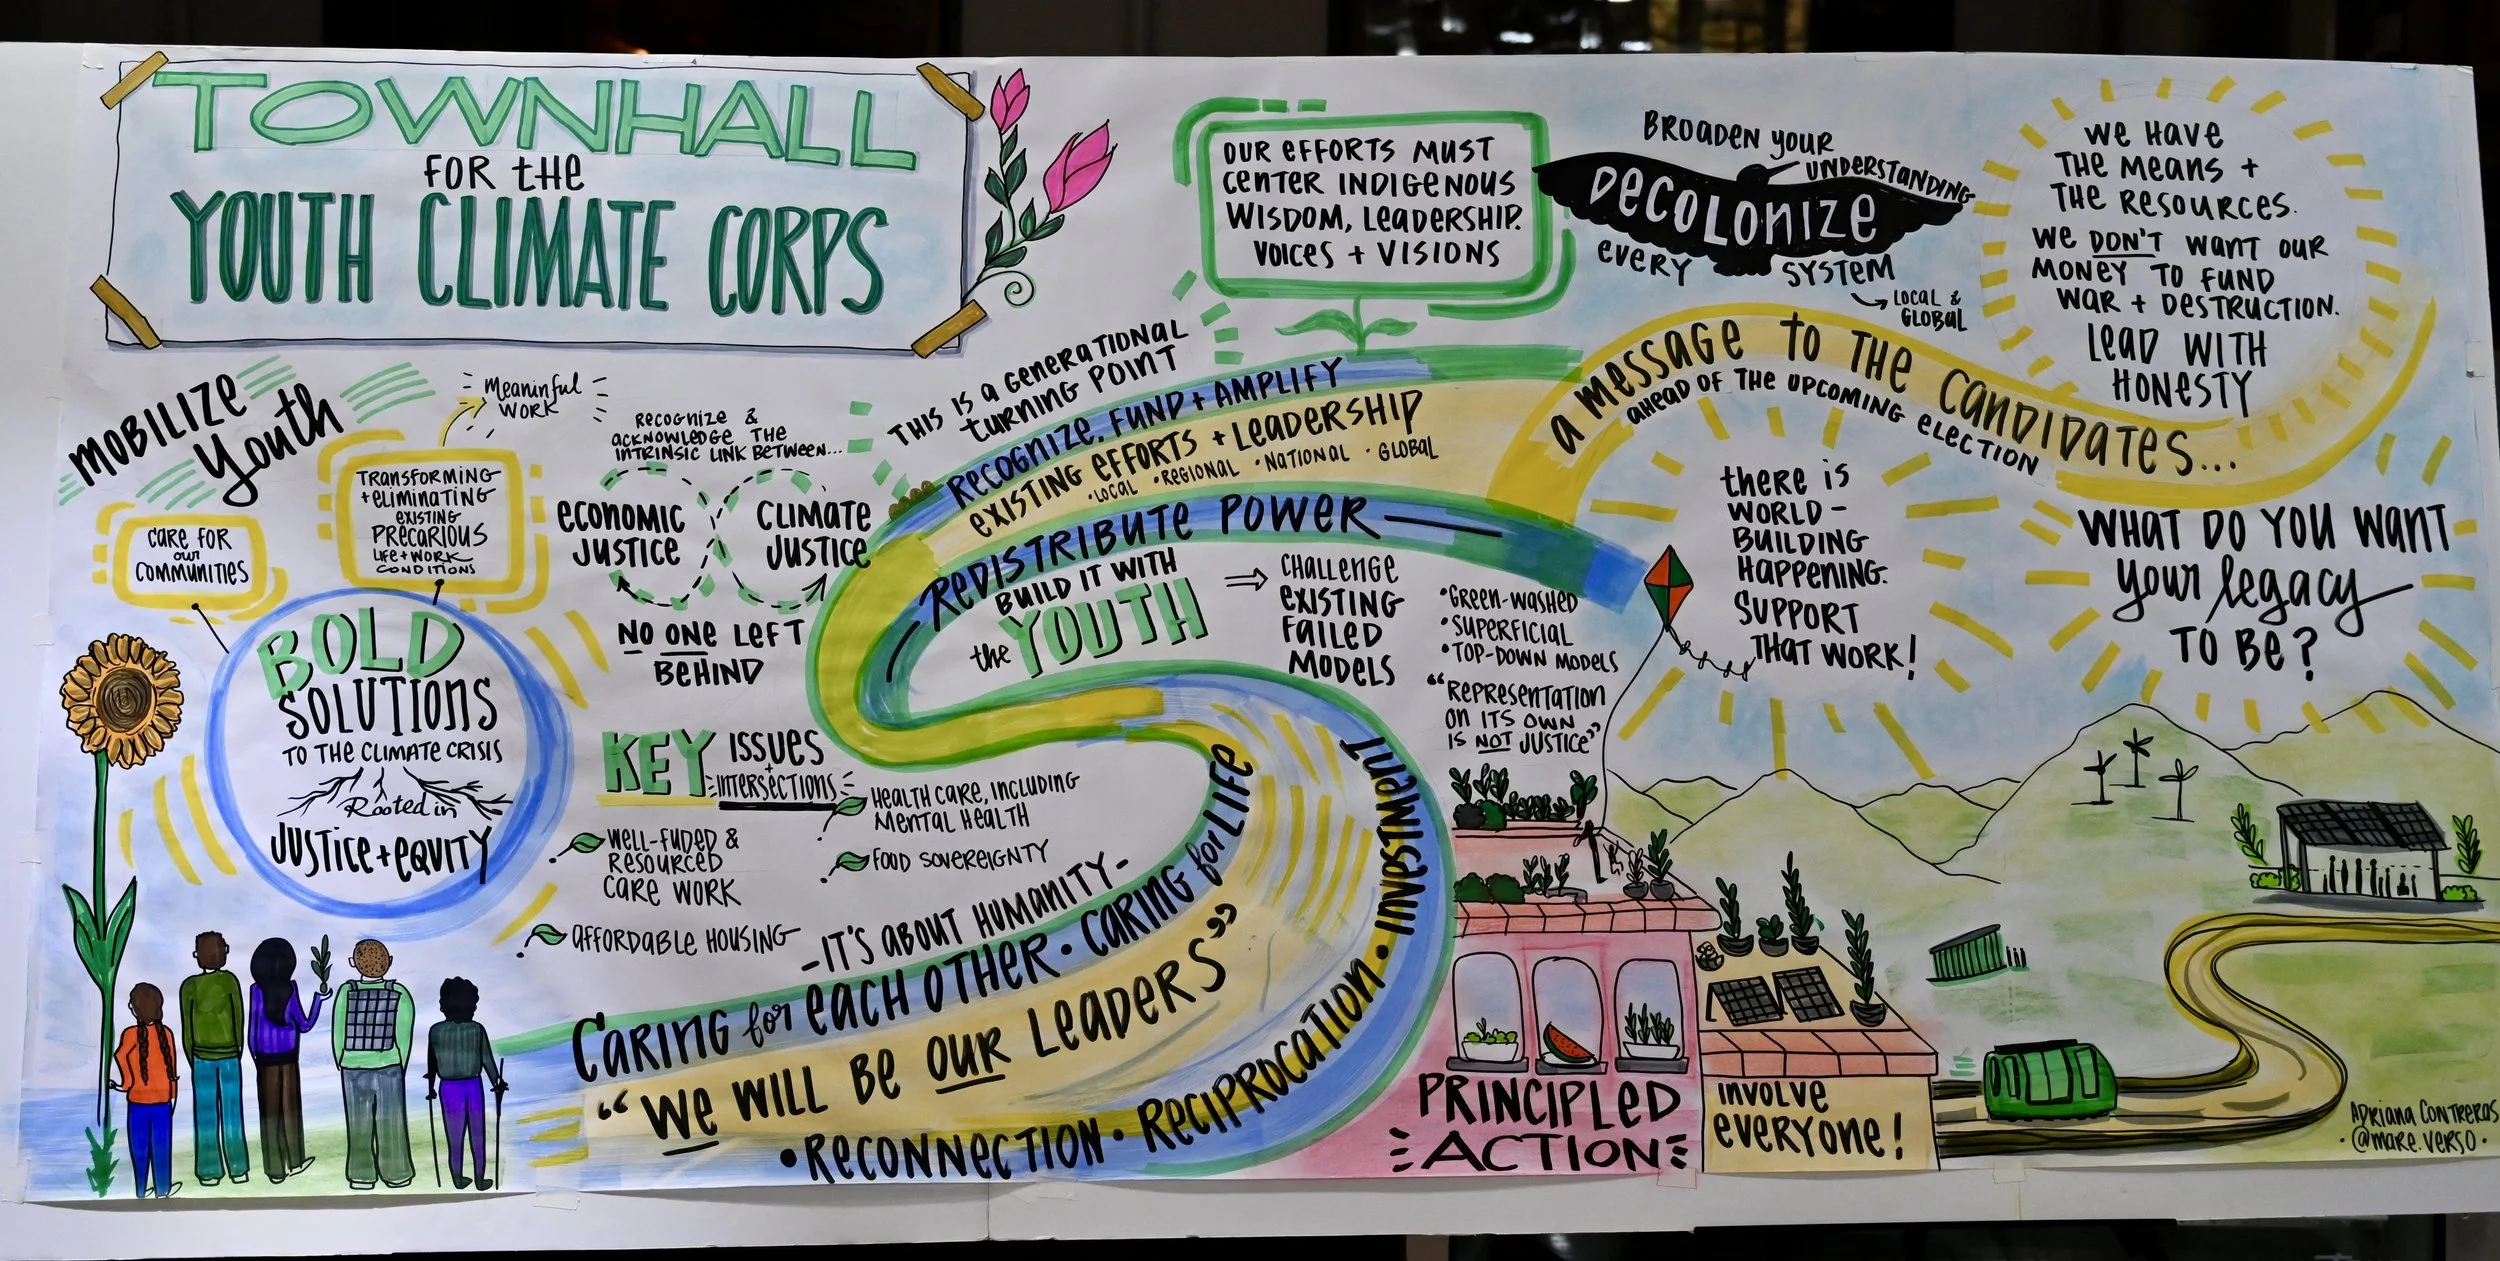 TOWNHALL
FOR the
YOUTH CLIMATE CORPS
MOBILIZE
Youth
CARE FOR
our
COMMUNITIES
Meaningful
WORK
TRANSFORMING
+ eLIMINATING
EXISTING
PRECARIOUS
LIFE + WORK
CONDITIONS
BOLD
SOLUTIONS
TO THE CLIMATE CRISIS
Rooted in
JUSTICE + eQUITY
RECOGNIZE &
ACKNOWLEDGE THE
INTRINSIC LINK BETWEEN...
ECONOMIC
JUSTICE
CLIMATE
JUSTICE
NO ONE LEFT
BEHIND
KEY ISSUES
+
INTERSECTIONS
HEALTH CARE, INCLUDING
MENTAL HEALTH
WELL-FUDED &
RESOURCED
CARE WORK
FOOD SOVEREIGNTY
AFFORDABLE HOUSING
THIS IS A GENERATIONAL
TURNING POINT
RECOGNIZE, FUND + AMPLIFY
EXISTING EFFORTS + LEADERSHIP
• LOCAL • REGIONAL • NATIONAL • GLOBAL
REDISTRIBUTE POWER
BUILD IT WITH
the YOUTH
CHALLENGE
EXISTING
FAILED
MODELS
• GREEN-WASHED
• SUPERFICIAL
• TOP-DOWN MODELS
“REPRESENTATION
ON ITS OWN
IS NOT JUSTICE”
– IT'S ABOUT HUMANITY –
CARING for EACH OTHER • CARING for LIFE
“WE WILL BE OUR LEADERS”
• RECONNECTION • RECIPROCATION • INVESTMENT
OUR EFFORTS MUST
CENTER INDIGENOUS
WISDOM, LEADERSHIP.
VOICES + VISIONS
BROADEN YOUR
UNDERSTANDING
DECOLONIZE
EVERY SYSTEM
LOCAL &
GLOBAL
A MESSAGE TO THE CANDIDATES...
AHEAD OF THE UPCOMING ELECTION
WE HAVE
THE MEANS +
THE RESOURCES.
WE DON'T WANT OUR
MONEY TO FUND
WAR + DESTRUCTION.
LEAD WITH
HONESTY
THERE IS
WORLD -
BUILDING
HAPPENING.
SUPPORT
THAT WORK!
WHAT DO YOU WANT
your legacy
TO BE?
PRINCIPLED
ACTION
INVOLVE
EVERYONE!
ADRIANA CONTRERAS
• @MARE.VERSO •